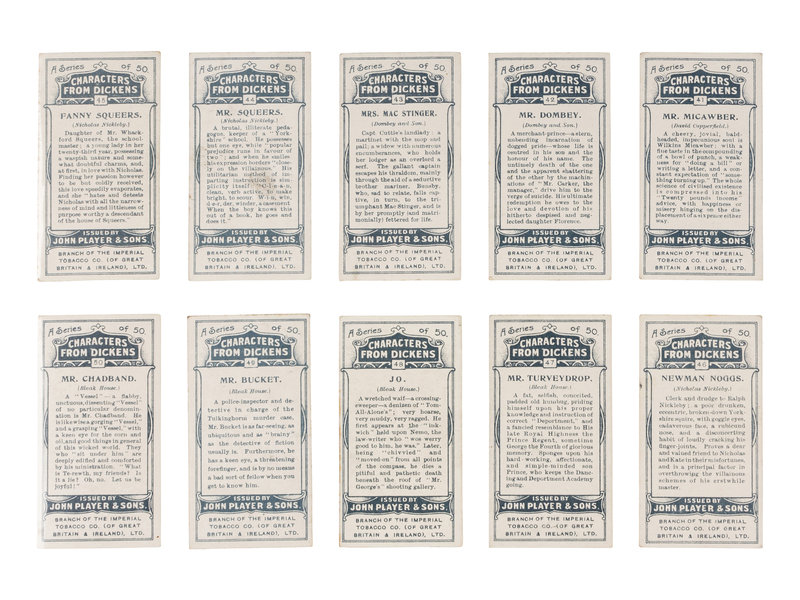 A Series of 50.
CHARACTERS
FROM DICKENS
45
FANNY SQUEERS.
(Nicholas Nickleby.)
Daughter of Mr. Whack-
ford Squeers, the school-
master; a young lady in her
twenty-third year, possessing
a waspish nature and some-
what doubtful charms, and,
at first, in love with Nicholas.
Finding her passion however
to be but coldly received,
this love speedily evaporates,
and she "hates and detests
Nicholas with all the narrow-
ness of mind and littleness of
purpose worthy a descendant
of the house of Squeers."
ISSUED BY
JOHN PLAYER & SONS.
BRANCH OF THE IMPERIAL
TOBACCO CO. (OF GREAT
BRITAIN & IRELAND), LTD.
A Series of 50.
CHARACTERS
FROM DICKENS
44
MR. SQUEERS.
(Nicholas Nickleby.)
A brutal, illiterate peda-
gogue, keeper of a "York-
shire" school. He possesses
but one eye, while "popular
prejudice runs in favour of
two"; and when he smiles
his expression borders "close-
ly on the villainous." His
utilitarian method of im-
parting instruction is sim-
plicity itself: "C-l-e-a-n,
clean, verb active, to make
bright, to scour. W-i-n, win,
d-e-r, der, winder, a casement.
When the boy knows this
out of a book, he goes and
does it."
ISSUED BY
JOHN PLAYER & SONS.
BRANCH OF THE IMPERIAL
TOBACCO CO. (OF GREAT
BRITAIN & IRELAND), LTD.
A Series of 50.
CHARACTERS
FROM DICKENS
43
MRS. MAC STINGER.
(Dombey and Son.)
Capt. Cuttle's landlady: a
martinet with the mop and
pail; a widow with numerous
encumbrances, who holds
her lodger as an overlord a
serf. The gallant captain
escapes his thraldom, mainly
through the aid of a seductive
brother mariner, Bunsby,
who, sad to relate, falls cap-
tive, in turn, to the tri-
umphant Mac Stinger, and is
by her promptly (and matri-
monially) fettered for life.
ISSUED BY
JOHN PLAYER & SONS.
BRANCH OF THE IMPERIAL
TOBACCO CO. (OF GREAT
BRITAIN & IRELAND), LTD.
A Series of 50.
CHARACTERS
FROM DICKENS
42
MR. DOMBEY.
(Dombey and Son.)
A merchant-prince—a stern,
unbending incarnation of
dogged pride—whose life is
centred in his son and the
honour of his name. The
untimely end of the one
and the apparent shattering
of the other by the machin-
ations of "Mr. Carker, the
manager," drive him to the
verge of suicide. His ultimate
redemption he owes to the
love and devotion of his
hitherto despised and neg-
lected daughter Florence.
ISSUED BY
JOHN PLAYER & SONS.
BRANCH OF THE IMPERIAL
TOBACCO CO. (OF GREAT
BRITAIN & IRELAND), LTD.
A Series of 50.
CHARACTERS
FROM DICKENS
41
MR. MICAWBER.
(David Copperfield.)
A cheery, jovial, bald-
headed, impecunious soul is
Wilkins Micawber; with a
fine taste in the compounding
of a bowl of punch, a weak-
ness for "doing a bill" or
writing a letter, and a con-
stant expectation of "some-
thing turning up." The whole
science of civilised existence
is compressed into his
"Twenty pounds income"
advice, with happiness or
misery hinging on the dis-
placement of a sixpence either
way.
ISSUED BY
JOHN PLAYER & SONS.
BRANCH OF THE IMPERIAL
TOBACCO CO. (OF GREAT
BRITAIN & IRELAND), LTD.
A Series of 50.
CHARACTERS
FROM DICKENS
50
MR. CHADBAND.
(Bleak House.)
A "Vessel"—a flabby,
unctuous, dissenting "Vessel"
of no particular denomin-
ation is Mr. Chadband. He
is likewise a gorging "Vessel,"
and a grasping "Vessel," with
a keen eye for the corn and
oil, and good things in general
of this wicked world. They
who "sit under him" are
deeply edified and comforted
by his ministration. "What
is Te-rewth, my friends? Is
it a lie? Oh, no. Let us be
joyful!"
ISSUED BY
JOHN PLAYER & SONS.
BRANCH OF THE IMPERIAL
TOBACCO CO. (OF GREAT
BRITAIN & IRELAND), LTD.
A Series of 50.
CHARACTERS
FROM DICKENS
49
MR. BUCKET.
(Bleak House.)
A police-inspector and de-
tective in charge of the
Tulkinghorn murder case,
Mr. Bucket is as far-seeing, as
ubiquitous and as "brainy"
as the detective of fiction
usually is. Furthermore, he
has a keen eye, a threatening
forefinger, and is by no means
a bad sort of fellow when you
get to know him.
ISSUED BY
JOHN PLAYER & SONS.
BRANCH OF THE IMPERIAL
TOBACCO CO. (OF GREAT
BRITAIN & IRELAND), LTD.
A Series of 50.
CHARACTERS
FROM DICKENS
48
JO.
(Bleak House.)
A wretched waif—a crossing-
sweeper—a denizen of "Tom-
All-Alone's"; very hoarse,
very muddy, very ragged. He
first appears at the "ink-
wich" held upon Nemo, the
law-writer who "was werry
good to him, he was." Later,
being "chivvied" and
"moved on" from all points
of the compass, he dies a
pitiful and pathetic death
beneath the roof of "Mr.
George's" shooting gallery.
ISSUED BY
JOHN PLAYER & SONS.
BRANCH OF THE IMPERIAL
TOBACCO CO. (OF GREAT
BRITAIN & IRELAND), LTD.
A Series of 50.
CHARACTERS
FROM DICKENS
47
MR. TURVEYDROP.
(Bleak House.)
A fat, selfish, conceited,
padded old humbug, priding
himself upon his proper
knowledge and instruction of
correct "Department," and
a fancied resemblance to His
late Royal Highness the
Prince Regent, sometime
George the Fourth of glorious
memory. Sponges upon his
hard working, affectionate,
and simple-minded son
Prince, who keeps the Danc-
ing and Department Academy
going.
ISSUED BY
JOHN PLAYER & SONS.
BRANCH OF THE IMPERIAL
TOBACCO CO. (OF GREAT
BRITAIN & IRELAND), LTD.
A Series of 50.
CHARACTERS
FROM DICKENS
46
NEWMAN NOGGS.
(Nicholas Nickleby.)
Clerk and drudge to Ralph
Nickleby; a poor drunken,
eccentric, broken-down York-
shire squire, with goggle eyes,
cadaverous face, a rubicund
nose, and a disconcerting
habit of loudly cracking his
finger-joints. Proves a dear
and valued friend to Nicholas
and Kate in their misfortunes,
and is a principal factor in
overthrowing the villainous
schemes of his erstwhile
master.
ISSUED BY
JOHN PLAYER & SONS.
BRANCH OF THE IMPERIAL
TOBACCO CO. (OF GREAT
BRITAIN & IRELAND), LTD.